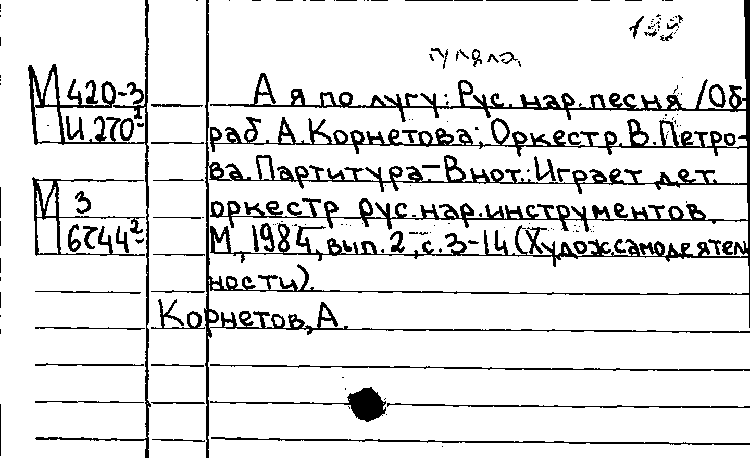 199
гуляла,
М 420-3
И.270²
А я по лугу: Рус. нар. песня / Об-
раб. А. Корнетова; Оркестр. В. Петро-
ва. Партитура.– В нот.: Играет дет.
М 3
6744²
оркестр рус. нар. инструментов.
М., 1984, вып. 2, с. 3-14. (Худож. самодеятель
ности).
Корнетов, А.